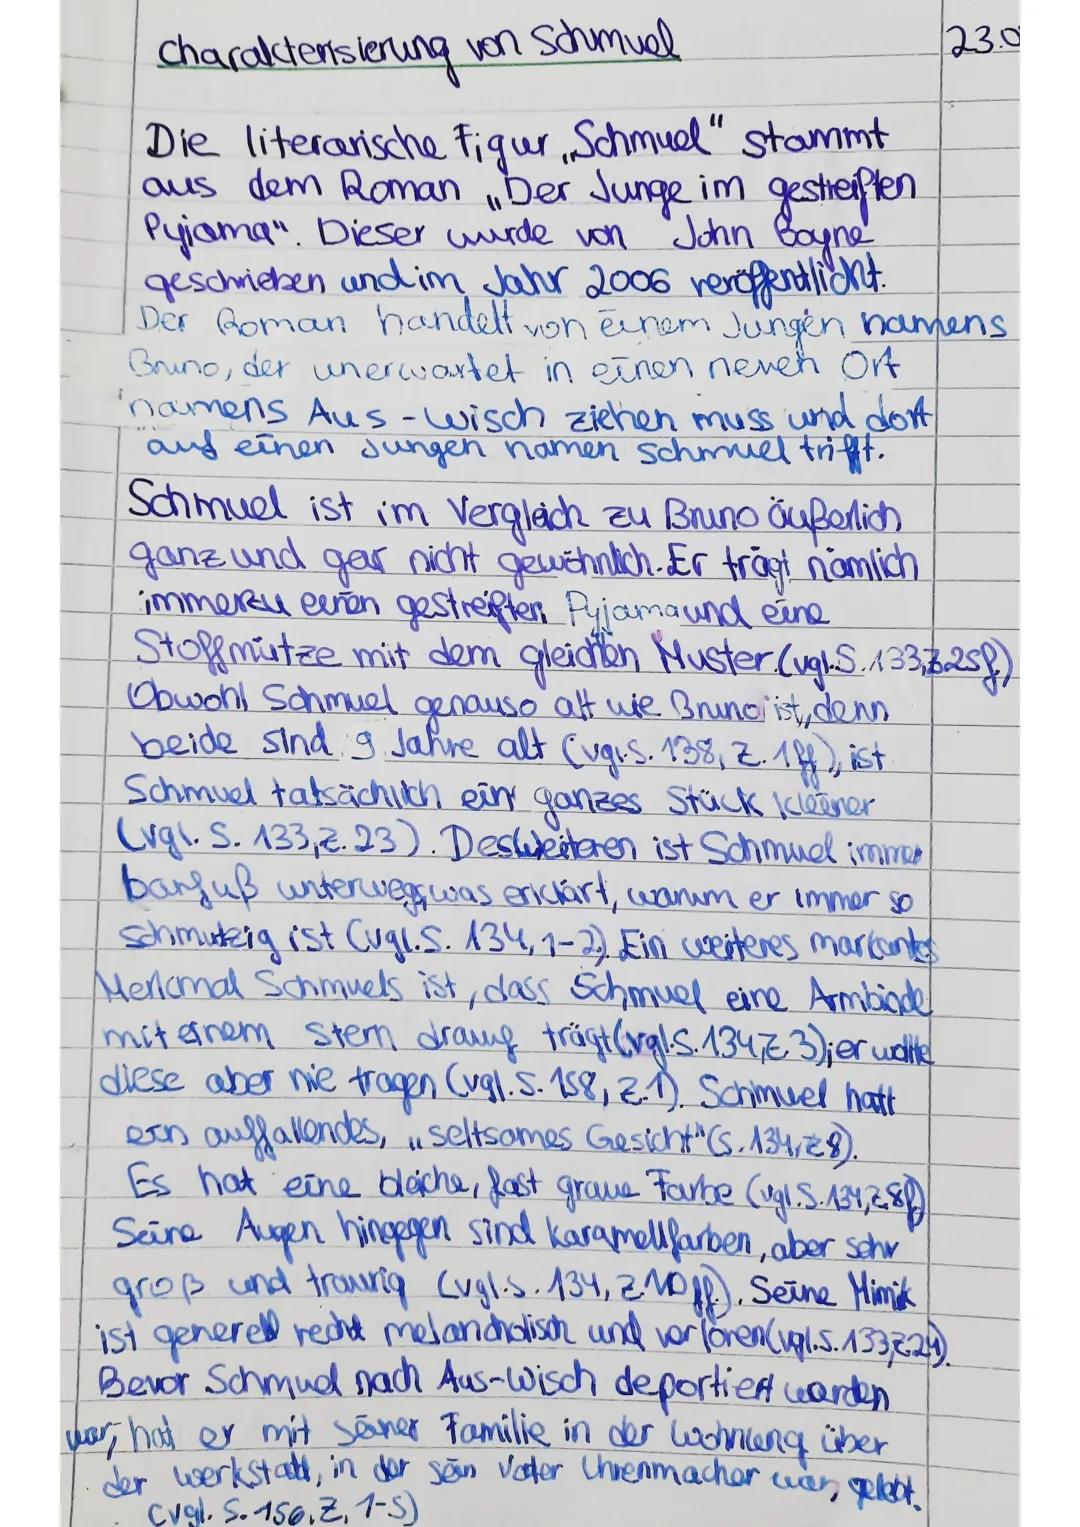 Charakterisierung von Schmuel
23.0
Die literarische Figur „Schmuel" stammt
aus dem Roman „Der Junge im gestreiften
Pyjama". Dieser wurde von John Boyne
geschrieben und im Jahr 2006 veröffentlicht.
Der Roman handelt von einem Jungen namens
Bruno, der unerwartet in einen neuen Ort
namens Aus-Wisch ziehen muss und dort
auf einen Jungen namen Schmuel trifft.
Schmuel ist im Vergleich zu Bruno äußerlich
ganz und gar nicht gewöhnlich. Er trägt nämlich
immerzu einen gestreiften Pyjama und eine
Stoffmütze mit dem gleichen Muster (vgl. S. 133, Z. 25f.)
Obwohl Schmuel genauso alt wie Bruno ist, denn
beide sind 9 Jahre alt (vgl. S. 138, Z. 1ff), ist
Schmuel tatsächlich ein ganzes Stück kleiner
(vgl. S. 133, Z. 23). Desweiteren ist Schmuel immer
barfuß unterwegs, was erklärt, warum er immer so
schmutzig ist (vgl. S. 134, 1-2). Ein weiteres markantes
Merkmal Schmuels ist, dass Schmuel eine Armbinde
mit einem Stern drauf trägt (vgl. S. 134, Z 3); er wollte
diese aber nie tragen (vgl. S. 158, Z. 1). Schmuel hatt
ein auffallendes, „seltsames Gesicht" (S. 134, Z 8).
Es hat eine bleiche, fast graue Farbe (vgl. S. 134, Z 8f)
Seine Augen hingegen sind karamellfarben, aber sehr
groß und traurig (vgl. S. 134, Z. 10ff.). Seine Mimik
ist generell recht melancholisch und verloren (vgl. S. 133, Z. 24).
Bevor Schmuel nach Aus-Wisch deportiert worden
war, hat er mit seiner Familie in der Wohnung über
der Werkstatt, in der sein Vater Uhrenmacher war, gelebt.
(vgl. S. 156, Z, 1-5)